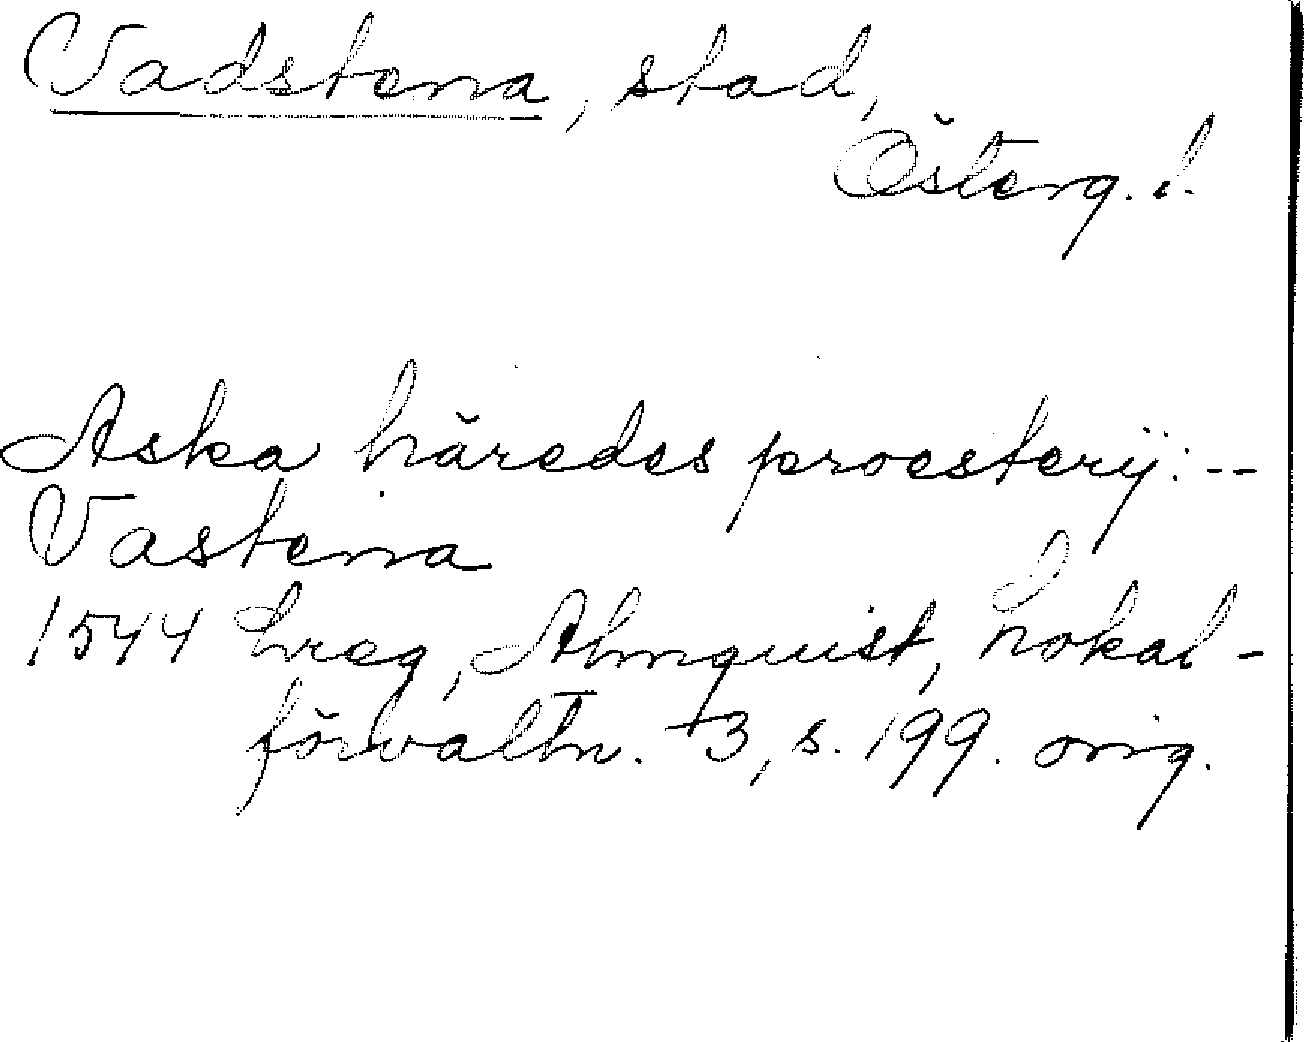 Vadstena, stad,
Österg. l.
Aska häredes proestery: --
Vastena
1544 Lreg, Almquist, Lokal-
förvaltn. 3, s. 199. orig.